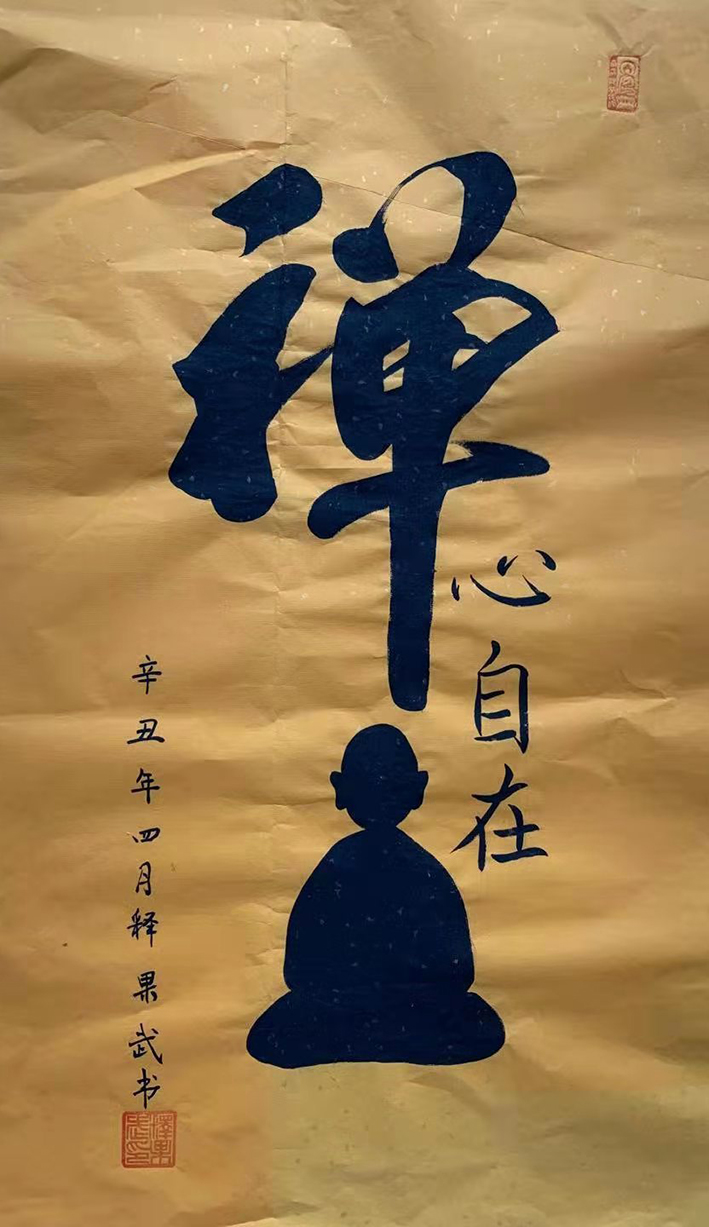 禅
心自在
辛丑年四月释果武书